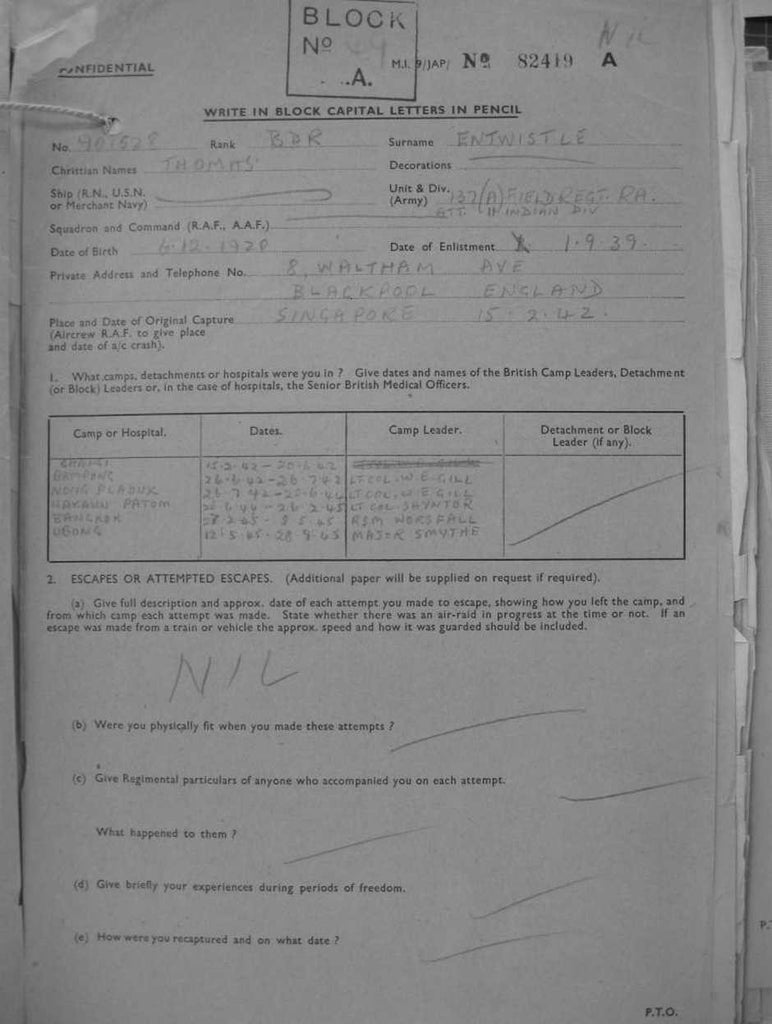 BLOCK
Nº
A.
NIL
CONFIDENTIAL
M.I. 9/JAP/ Nº 82419 A
WRITE IN BLOCK CAPITAL LETTERS IN PENCIL
No. 901528 Rank BDR Surname ENTWISTLE
Christian Names THOMAS Decorations
Ship (R.N., U.S.N. or Merchant Navy)
Unit & Div. (Army) 137(A) FIELD REGT. RA.
ATT. 11 INDIAN DIV
Squadron and Command (R.A.F., A.A.F.)
Date of Birth 6.12.1920 Date of Enlistment 1.9.39.
Private Address and Telephone No. 8, WALTHAM AVE
BLACKPOOL ENGLAND
Place and Date of Original Capture SINGAPORE 15.2.42.
(Aircrew R.A.F. to give place
and date of a/c crash).
1. What camps, detachments or hospitals were you in ? Give dates and names of the British Camp Leaders, Detachment
(or Block) Leaders or, in the case of hospitals, the Senior British Medical Officers.
Camp or Hospital. Dates. Camp Leader. Detachment or Block
Leader (if any).
CHANGI 15.2.42-20.6.42
BAMPONG 26.6.42-26.7.42 LT COL. W E GILL
NONG PLADUK 26.7.42-20.6.44 LT COL. W E GILL
NAKAUN PATOM 20.6.44-26.2.45 LT COL SAYNTOR
BANGKOK 28.2.45-8.5.45 RSM WORSFALL
UBONG 12.5.45-28.9.45 MAJOR SMYTHE
2. ESCAPES OR ATTEMPTED ESCAPES. (Additional paper will be supplied on request if required).
(a) Give full description and approx. date of each attempt you made to escape, showing how you left the camp, and
from which camp each attempt was made. State whether there was an air-raid in progress at the time or not. If an
escape was made from a train or vehicle the approx. speed and how it was guarded should be included.
NIL
(b) Were you physically fit when you made these attempts ?
(c) Give Regimental particulars of anyone who accompanied you on each attempt.
What happened to them ?
(d) Give briefly your experiences during periods of freedom.
(e) How were you recaptured and on what date ?
P.T.O.